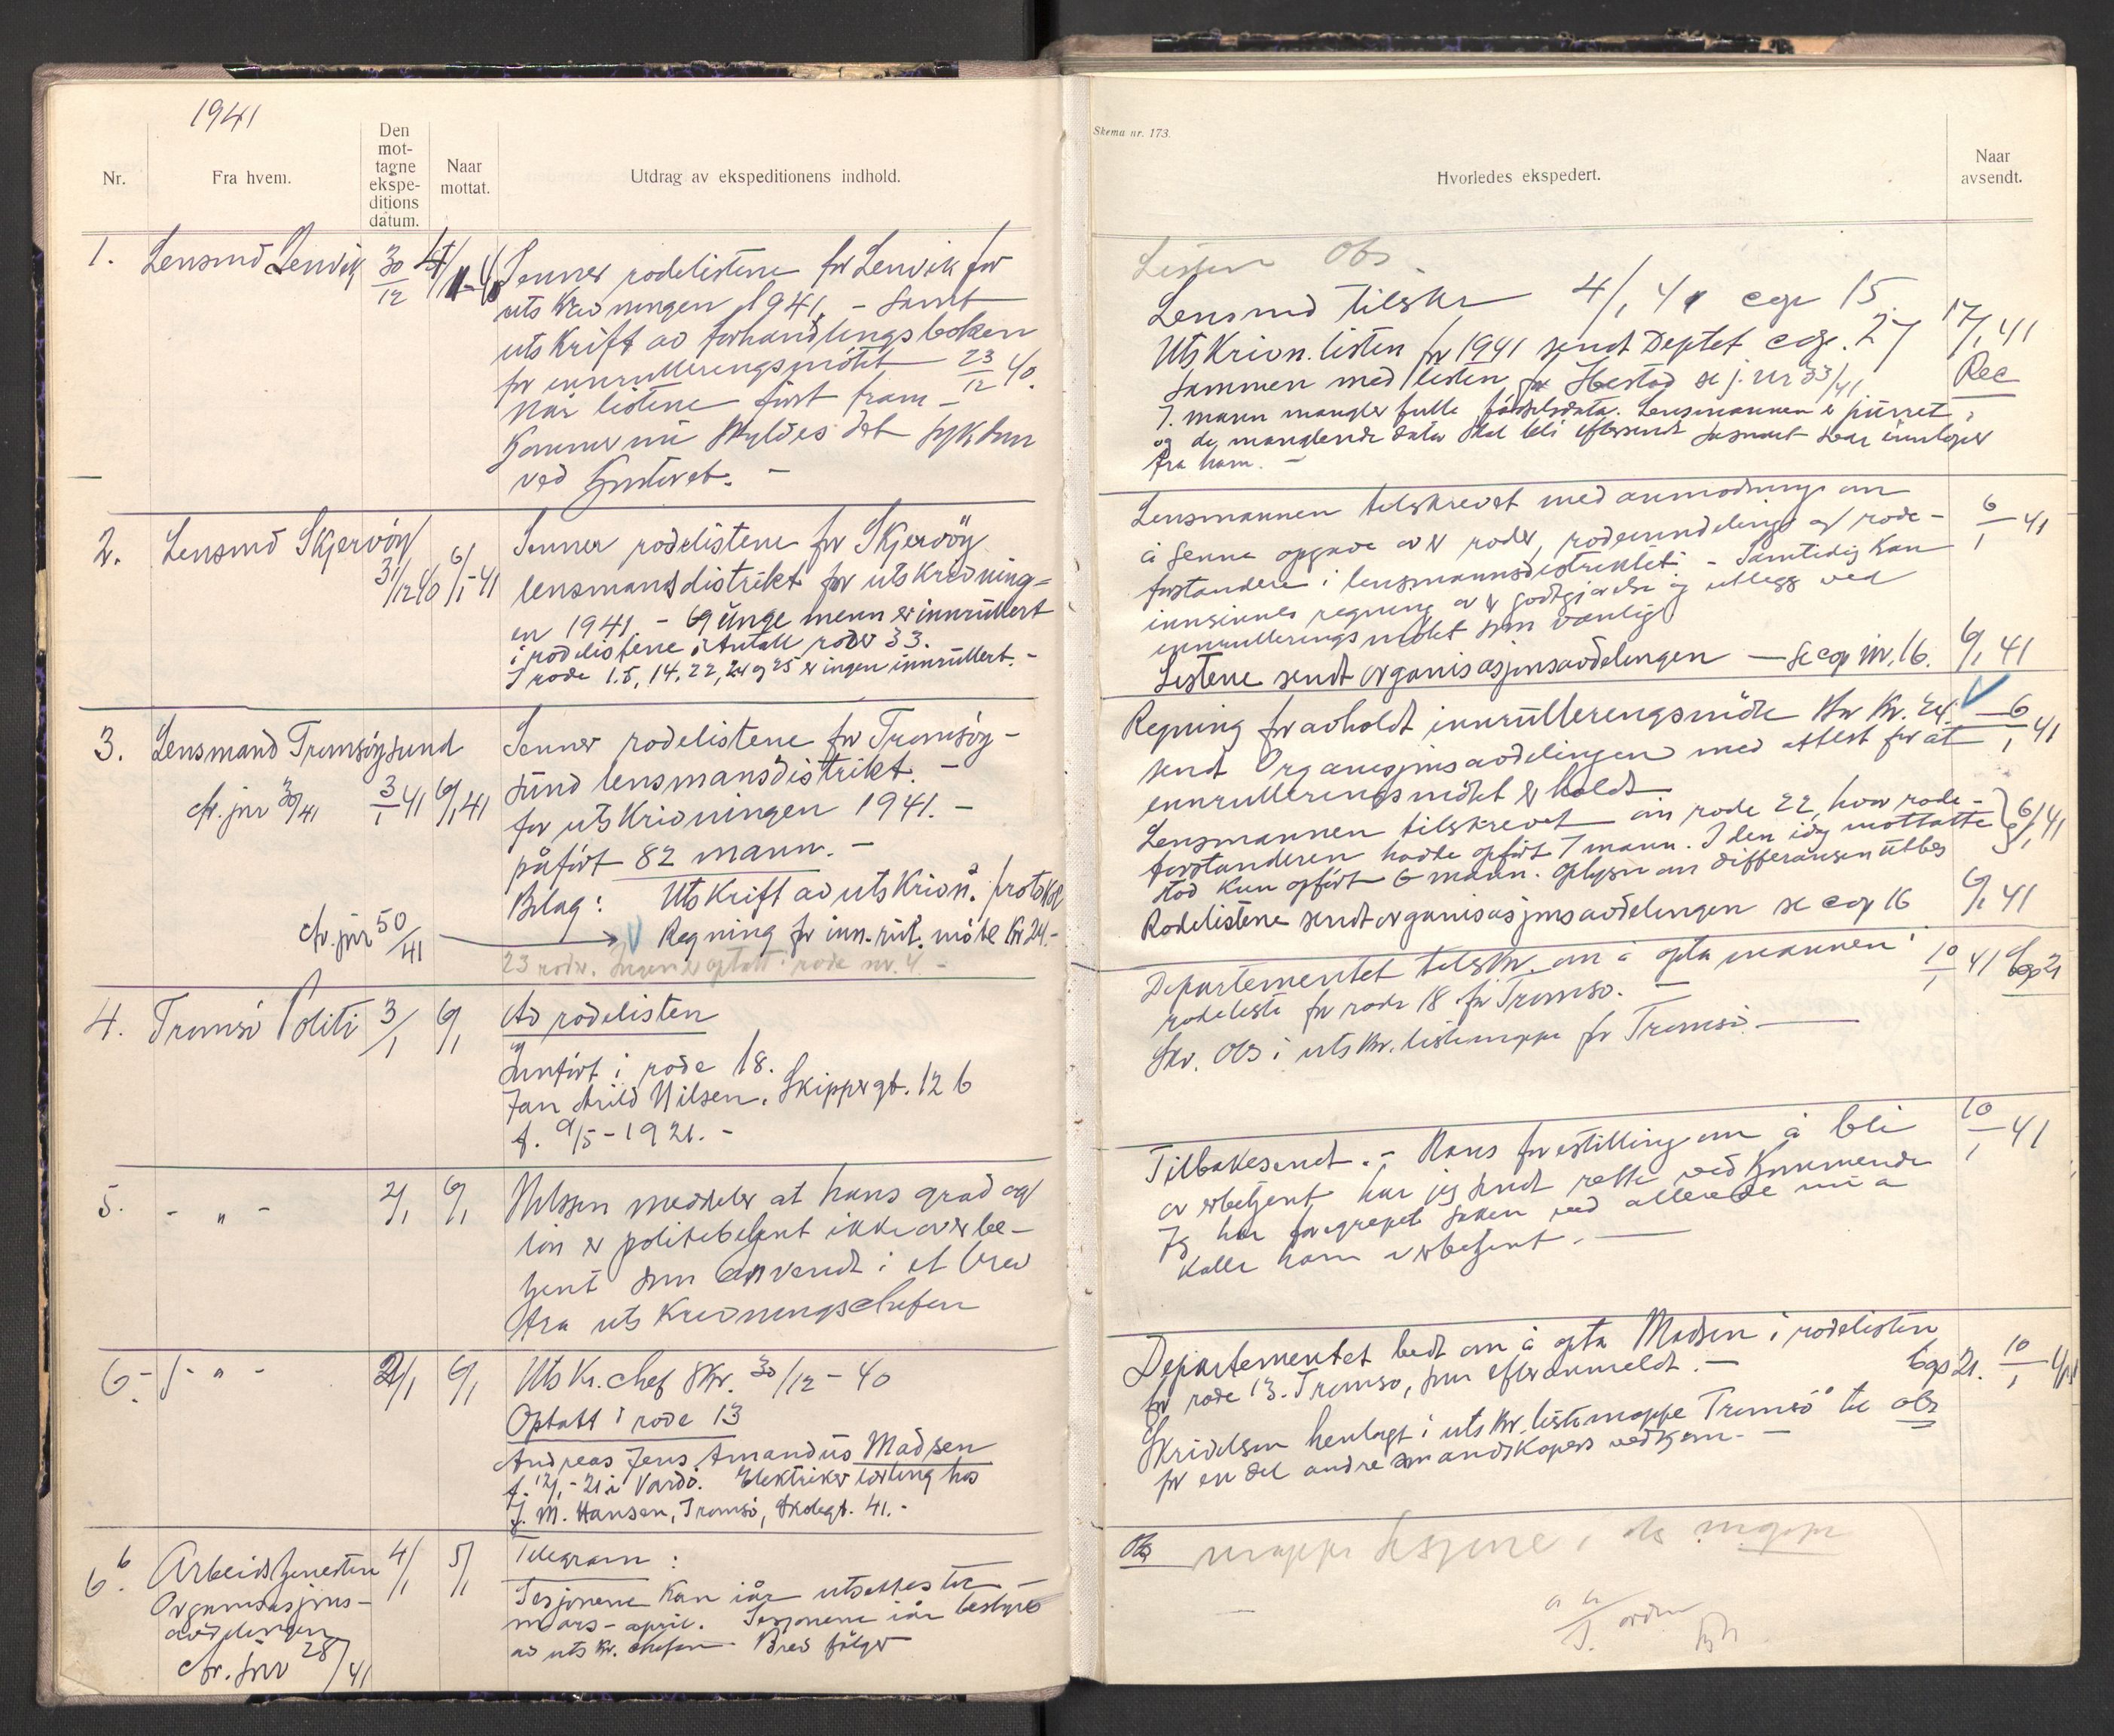 1941
Nr.
Fra hvem.
Den
mot-
tagne
ekspe-
ditions
datum.
Naar
mottat.
Utdrag av ekspeditionens indhold.
1.
Lensmd Lenvik
30/12
4/1-41
Senner rodelistene for Lenvik for
utskrivningen 1941, - samt
utskrift av forhandlingsboken
for innrulleringsmötet 23/12 40.
Når listene först fram-
kommer nu skyldes det sykdom
ved kontoret. -
2.
Lensmd Skjervöy
31/12 40
6/1-41
Senner rodelistene for Skjervöy
lensmansdistrikt for utskrivning-
en 1941 - 69 unge menn er innrullert
i rodelistene. Antall roder 33.
I rode 1.5, 14, 22, 24 og 25 er ingen innrullert. -
3.
Lensmand Tromsöysund
cfr. jnr 30/41
3/1 41
6/1 41
Senner rodelistene for Tromsöy-
sund lensmansdistrikt. -
for utskrivningen 1941. -
påfört 82 mann. -
Bilag: Utskrift av utskrivn. protokol
cfr. jnr 50/41
Regning for inn.rul. möte kr 24.-
23 roder. Ingen er optatt i rode nr. 4. -
4.
Tromsö Politi
3/1
6/1
Ad rodelisten
Innfört i rode 18.
Jan Arild Nilsen, Skippergt. 12 b
f. 9/5 - 1921. -
5.
- " -
2/1
6/1
Nilssen meddeler at hans grad og
lön er politibetjent ikke overbe-
tjent som anvendt i et brev
fra utskrivningschefen
6.
- " -
2/1
6/1
Utskr. chef skr. 30/12 - 40
Optatt i rode 13
Andreas Jens Amandus Madsen
f. 12/1 - 21 i Vardö. Elektriker lærling hos
J. M. Hansen, Tromsö, Skolegt. 41. -
6b.
Arbeidstjenesten
Organisasjons-
avdelingen
cfr. jnr 28/41
4/1
5/1
Telegram:
Sesjonene kan iår utsettes til
mars - april. Sesjonene iår bestyres
av utskr. chefen. Brev fölger
Skema nr. 173.
Hvorledes ekspedert.
Naar
avsendt.
Listen Obs.
Lensmd tilskr 4/1 41 cop 15.
Utskrivn. listen for 1941 sendt Deptet cop. 27
17/1 41
sammen med listen for Ibestad se j. nr 33/41
Rec
7. mann mangler fulle födselsdata. Lensmannen er purret,
og de manglende data skal bli eftersendt så snart svar innlöper
fra ham. -
Lensmannen tilskrevet med anmodning om
6/1 41
å senne opgave over roder, rodeinndeling og rode-
forstandere i lensmannsdistriktet - Samtidig kan
innsennes regning over godtgjørelse og utlegg ved
innrulleringsmötet som vanlig
Listene sendt organisasjonsavdelingen - Se cop nr. 16.
6/1 41
Regning for avholdt innrulleringsmöte stor kr. 24.-
6/1 41
sendt Organisjonsavdelingen med attest for at
innrulleringsmötet er holdt
Lensmannen tilskrevet om rode 22, hvor rode-
6/1 41
forstanderen hadde opfört 7 mann. I den idag mottatte
stod kun opfört 6 mann. Oplysn om differansen utbes
Rodelistene sendt organisasjonsavdelingen se cop 16
6/1 41
Departementet tilskr. om å opta mannen i
10/1 41 Cop 21
rodeliste for rode 18 for Tromsö. -
Skr. Obs i utskr. listemappe for Tromsö. -
Tilbakesendt. - Hans forestilling om å bli
10/1 41
overbetjent har jeg sendt rette vedkommende
Jeg har foregrepet saken ved allerede nu å
kalle ham overbetjent. -
Departementet bedt om å opta Madsen i rodelisten
for rode 13. Tromsö, som efteranmeldt. -
Cop 21. 10/1 41
Skrivelsen henlagt i utskr. listemappe Tromsö til obs
for en del andre mandskapers vedkom. -
Obs
mappe Sesjone, obs mappe